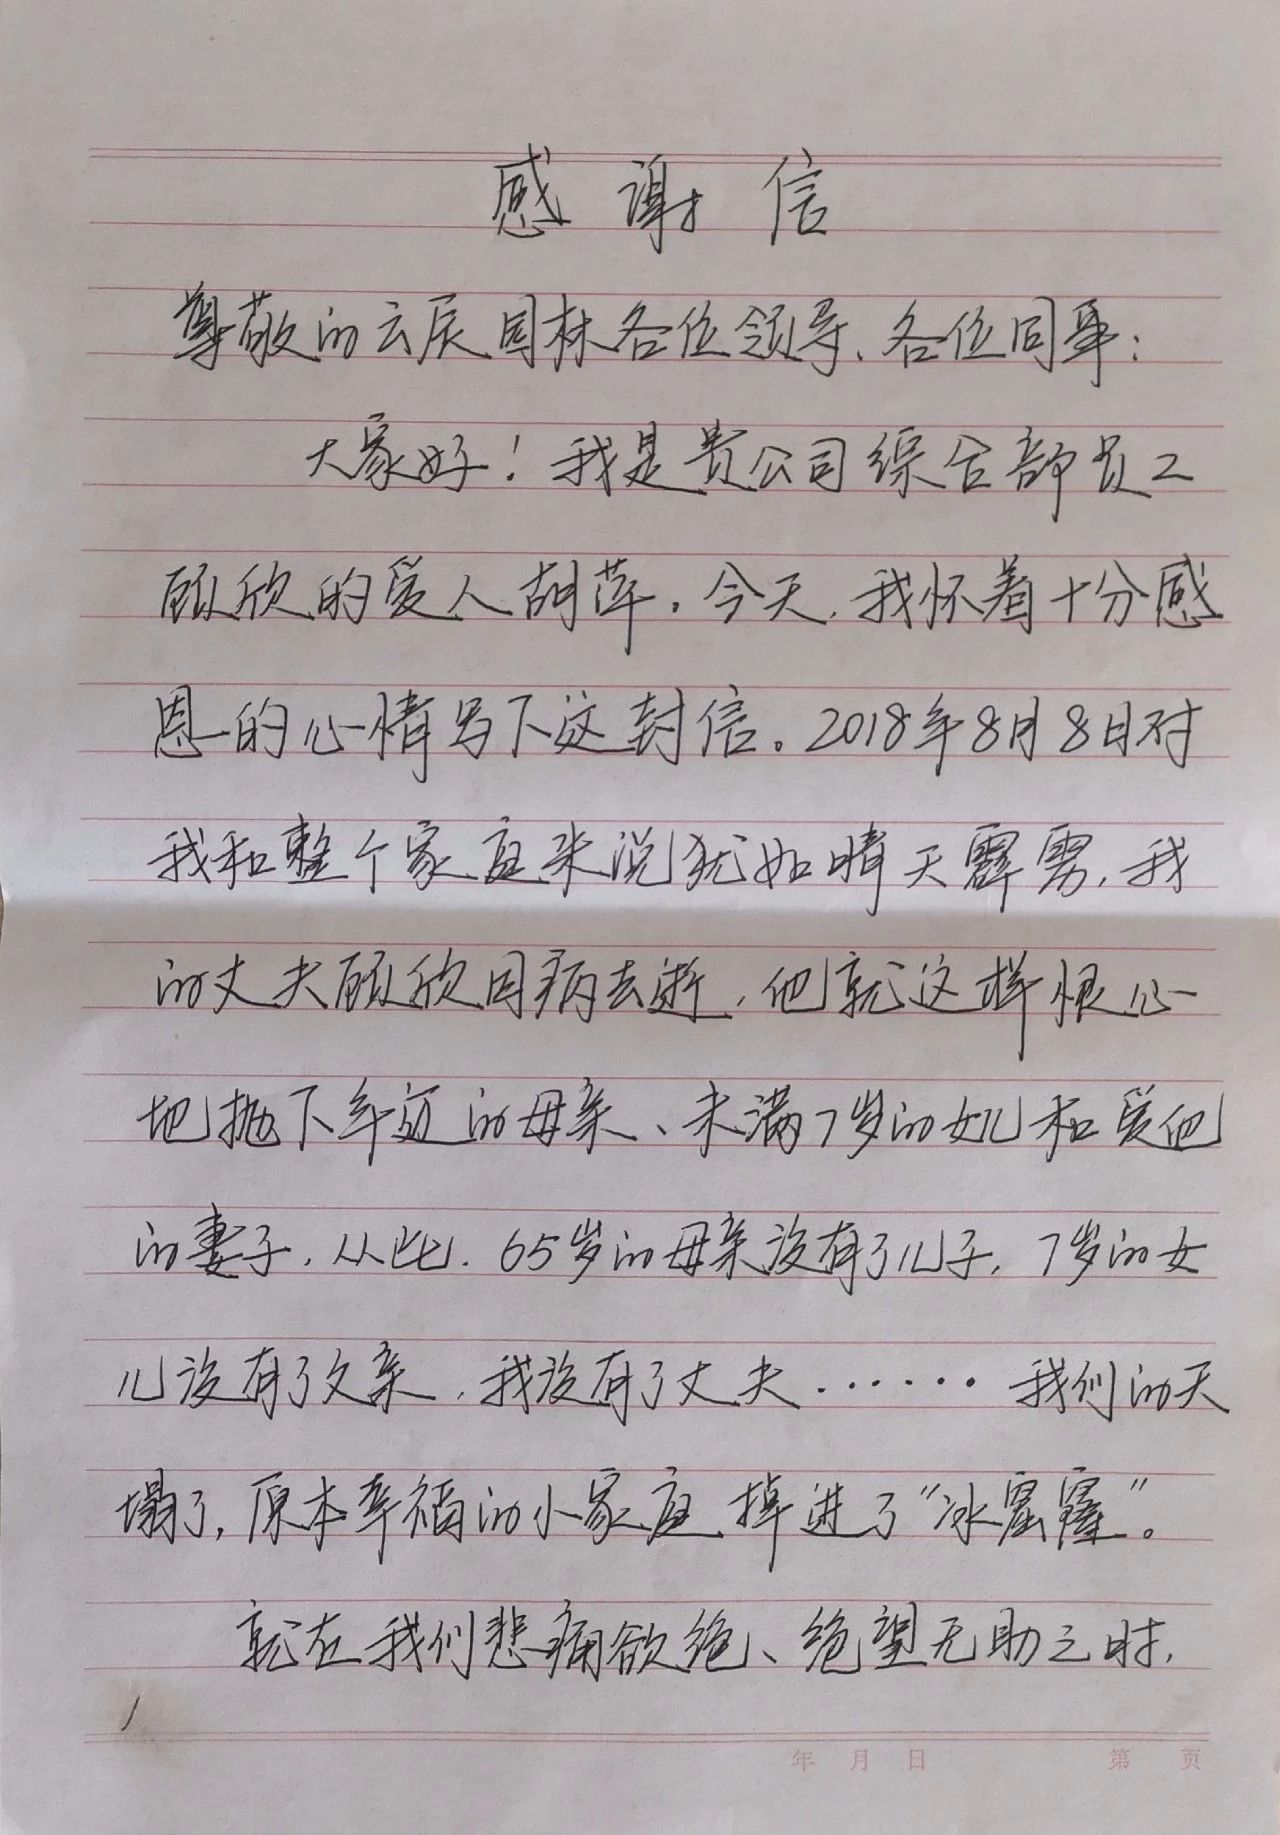 感谢信
尊敬的云辰园林各位领导、各位同事：
大家好！我是贵公司综合部员工
顾欣的爱人胡萍，今天，我怀着十分感
恩的心情写下这封信。2018年8月8日对
我和整个家庭来说犹如晴天霹雳，我
的丈夫顾欣因病去逝，他就这样狠心
地抛下年迈的母亲、未满7岁的女儿和爱他
的妻子，从此，65岁的母亲没有了儿子，7岁的女
儿没有了父亲，我没有了丈夫……我们的天
塌了，原本幸福的小家庭掉进了“冰窟窿”。
就在我们悲痛欲绝、绝望无助之时，
1
年 月 日 第 页